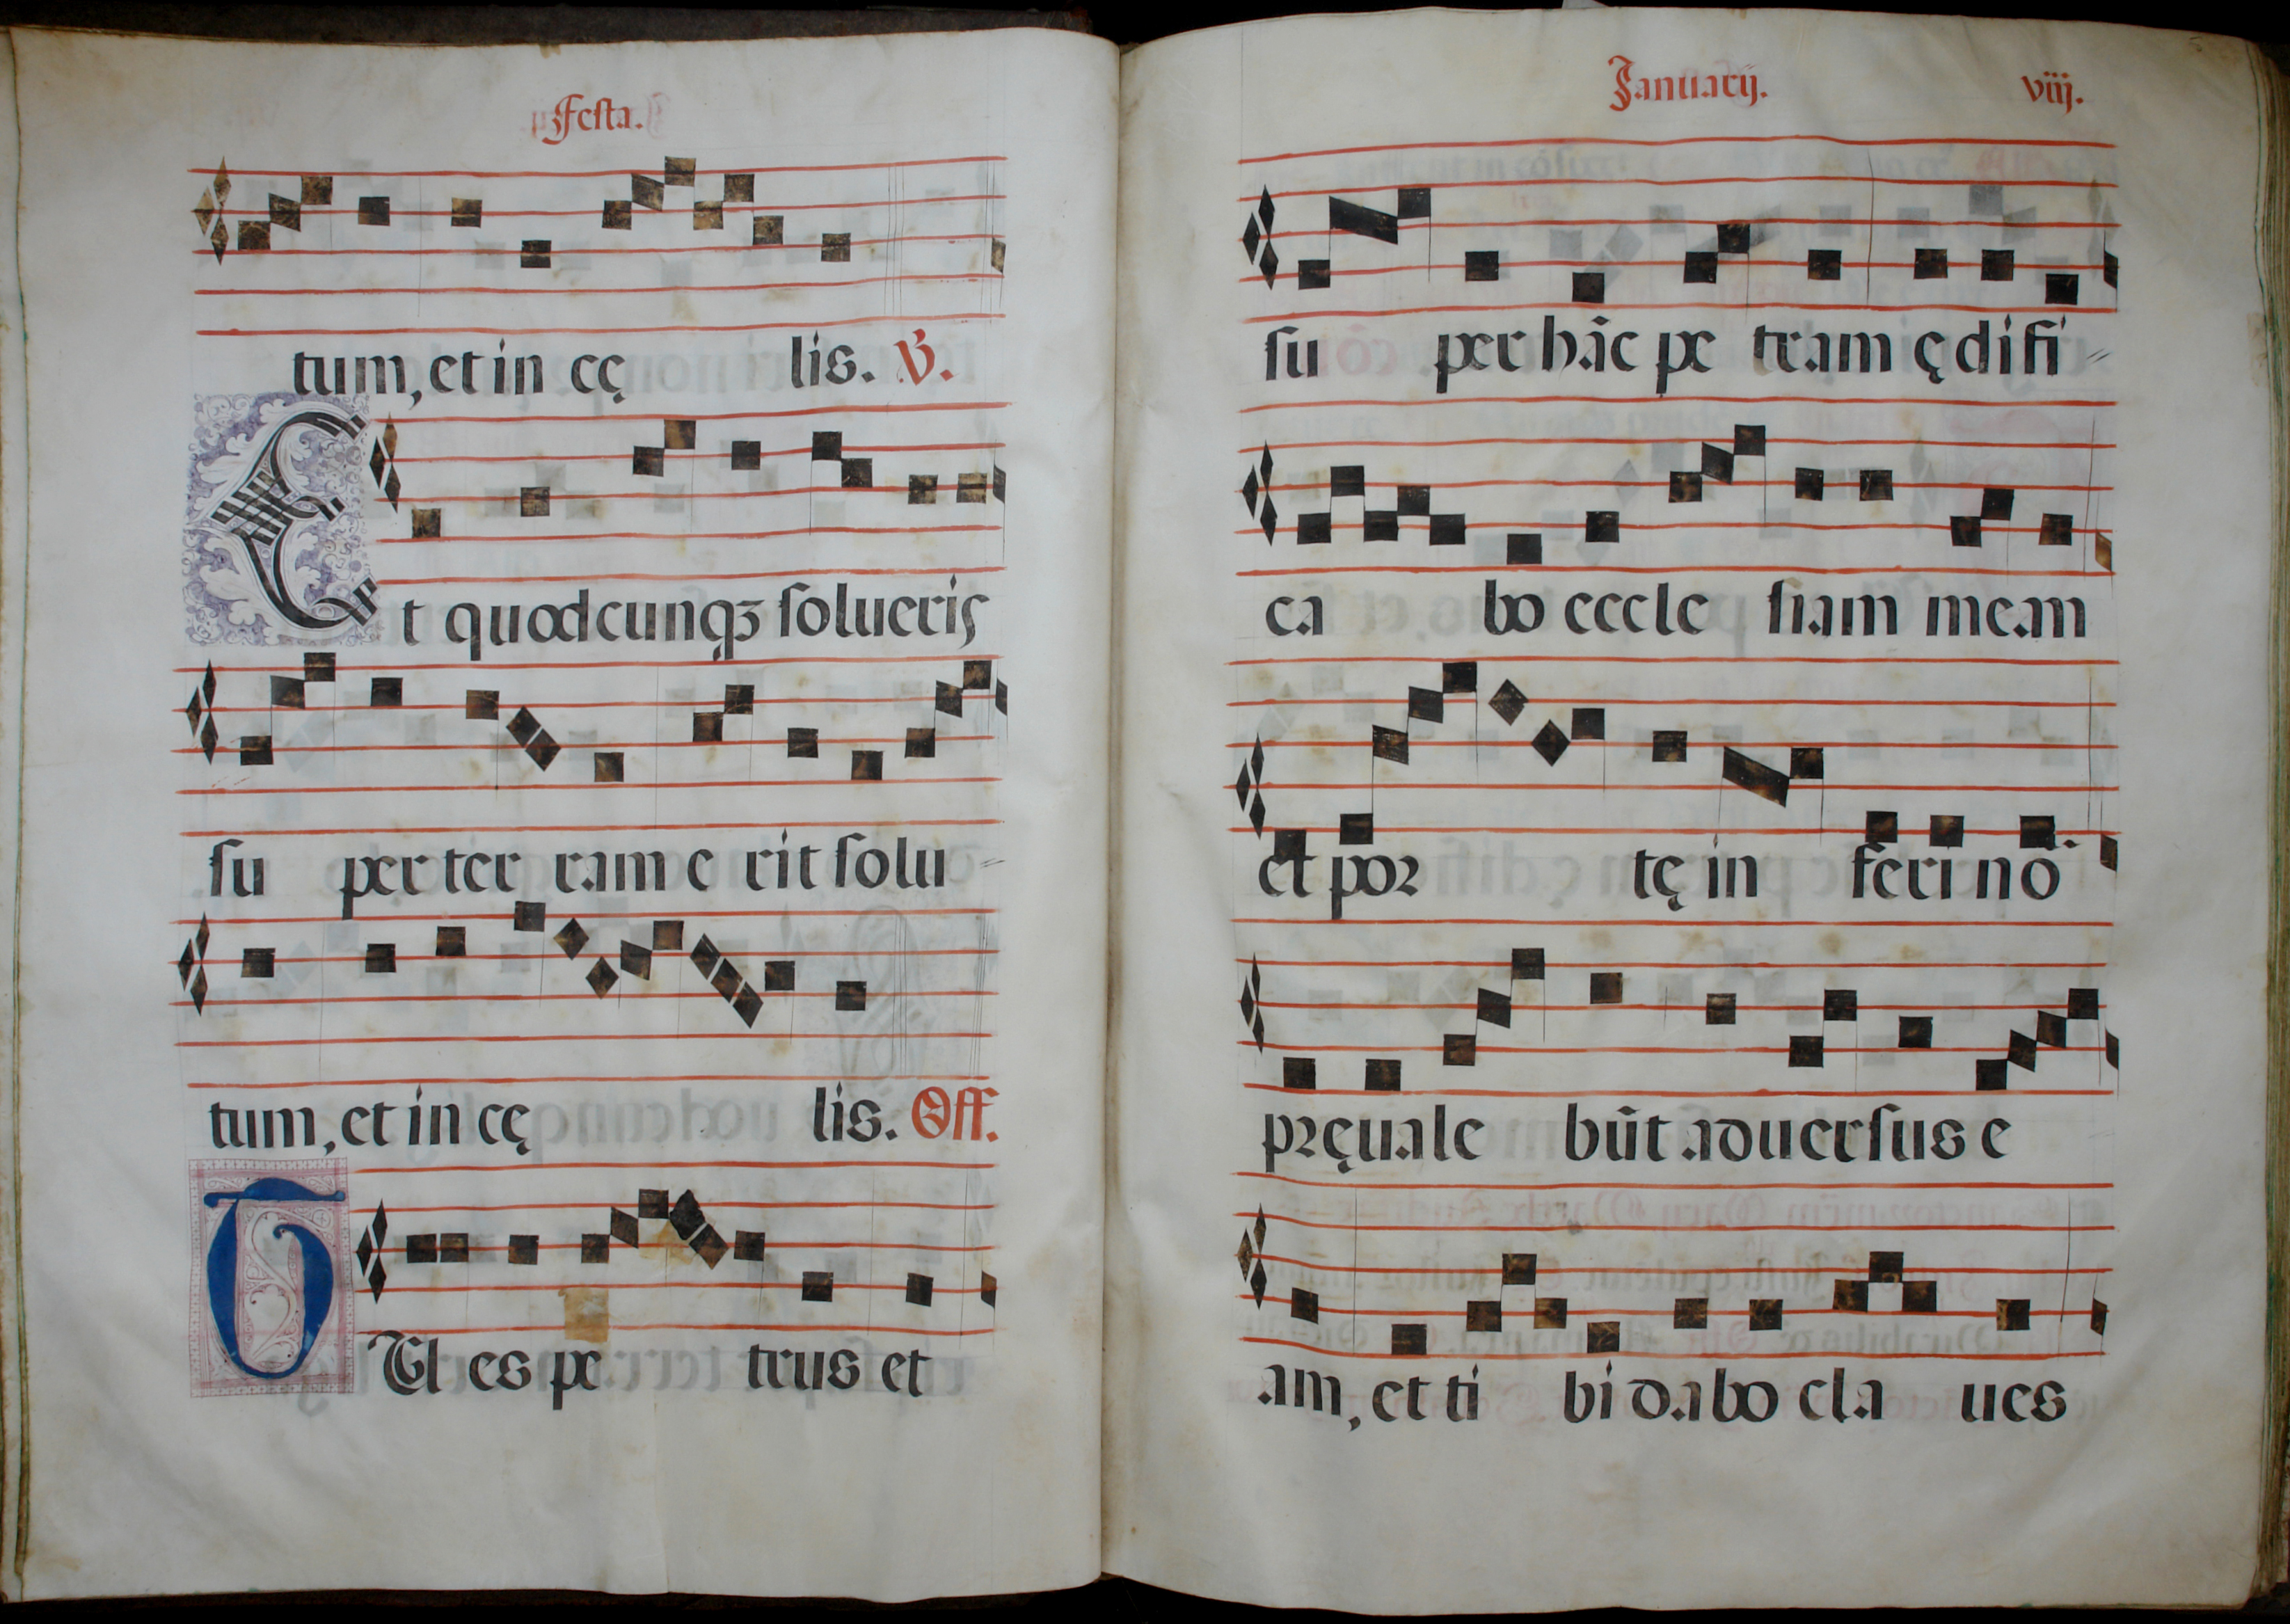 Festa.
tum, et in cę lis. ℣.
Et quodcunqꝫ solueris
su per ter ram e rit solu⸗
tum, et in cę lis. Off.
TU es pe trus et
Januarij. viij.
su per hãc pe tram ędifi⸗
ca bo eccle siam meam
et por tę in feri nõ
pręuale bũt aduersus e
am, et ti bi dabo cla ues